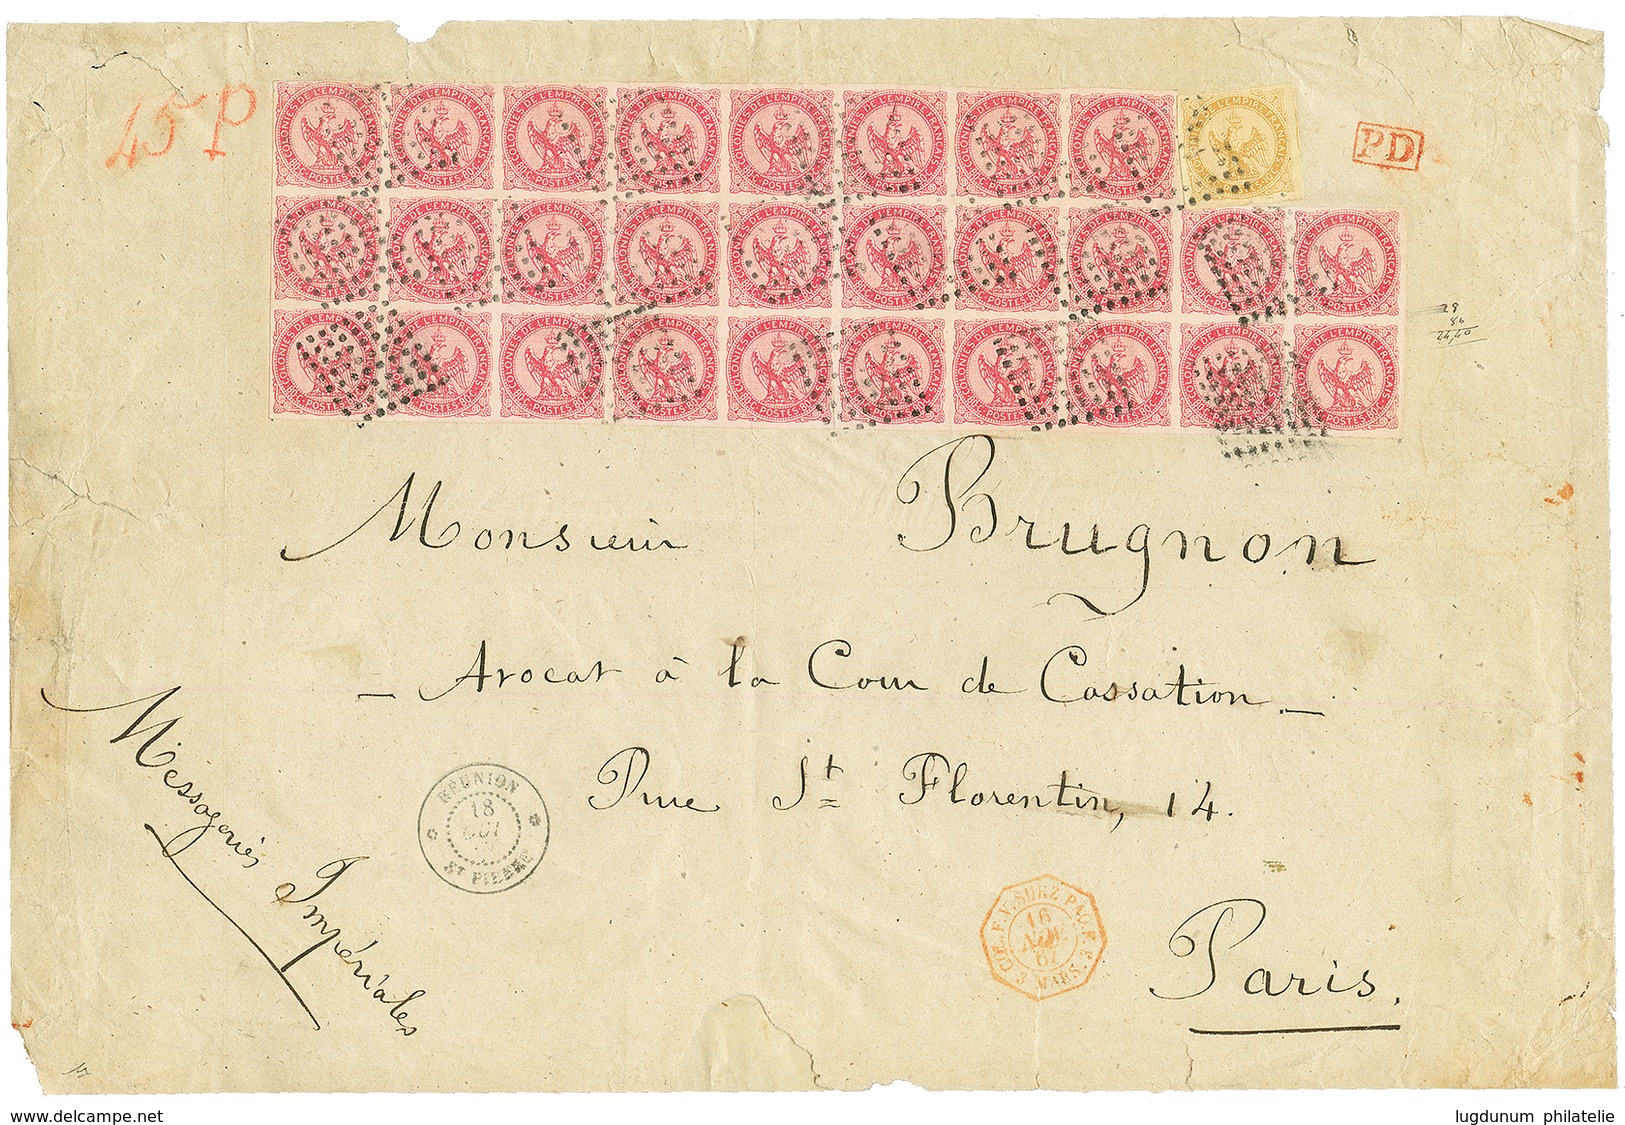 45 P
COLONIES DE L'EMPIRE FRANÇAIS
POSTES
PD
28
80
Monsieur Brugnon
- Avocat à la Cour de Cassation -
Rue St Florentin, 14.
Paris.
Messageries Impériales
RÉUNION
18
ST PIERRE
COL. F. V. SUEZ PAQ. F.
16
NOV
67
3 MARS.
www.delcampe.net
lugdunum philatelie